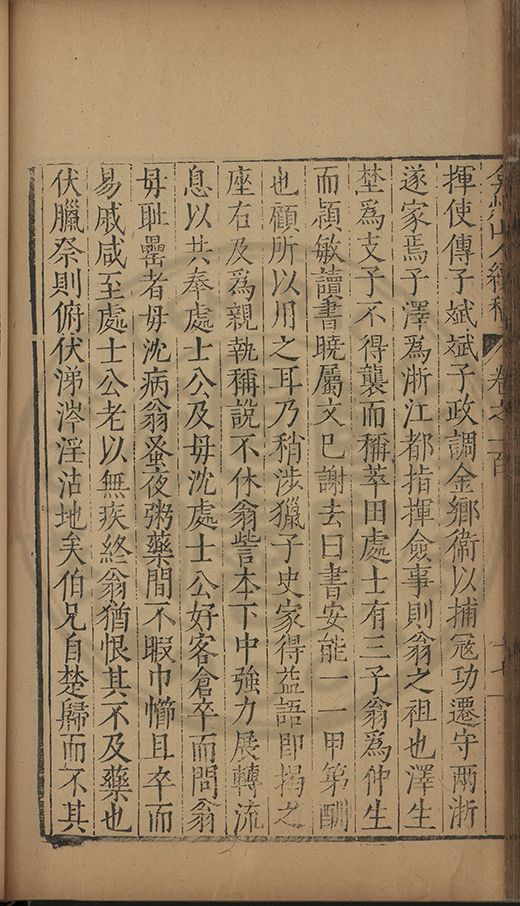 弇州山人續稿 卷之一百
揮使傅子斌斌子政調金鄉衛以捕冦功遷守两浙
遂家焉子澤爲浙江都指揮僉事則翁之祖也澤生
埜爲支子不得襲而稱莘田處士有三子翁爲仲生
而穎敏讀書曉屬文已謝去曰書安能一一甲第酬
也顧所以用之耳乃稍涉獵子史家得益語即揭之
座右及爲親執稱說不休翁訾本下中強力展轉流
息以共奉處士公及毋沈處士公好客倉卒而問翁
毋耻罍者毋沈病翁蚤夜粥藥間不暇巾櫛且卒而
易戚咸至處士公老以無疾終翁猶恨其不及藥也
伏臘祭則俯伏涕洿淫沾地矣伯兄自楚歸而不其